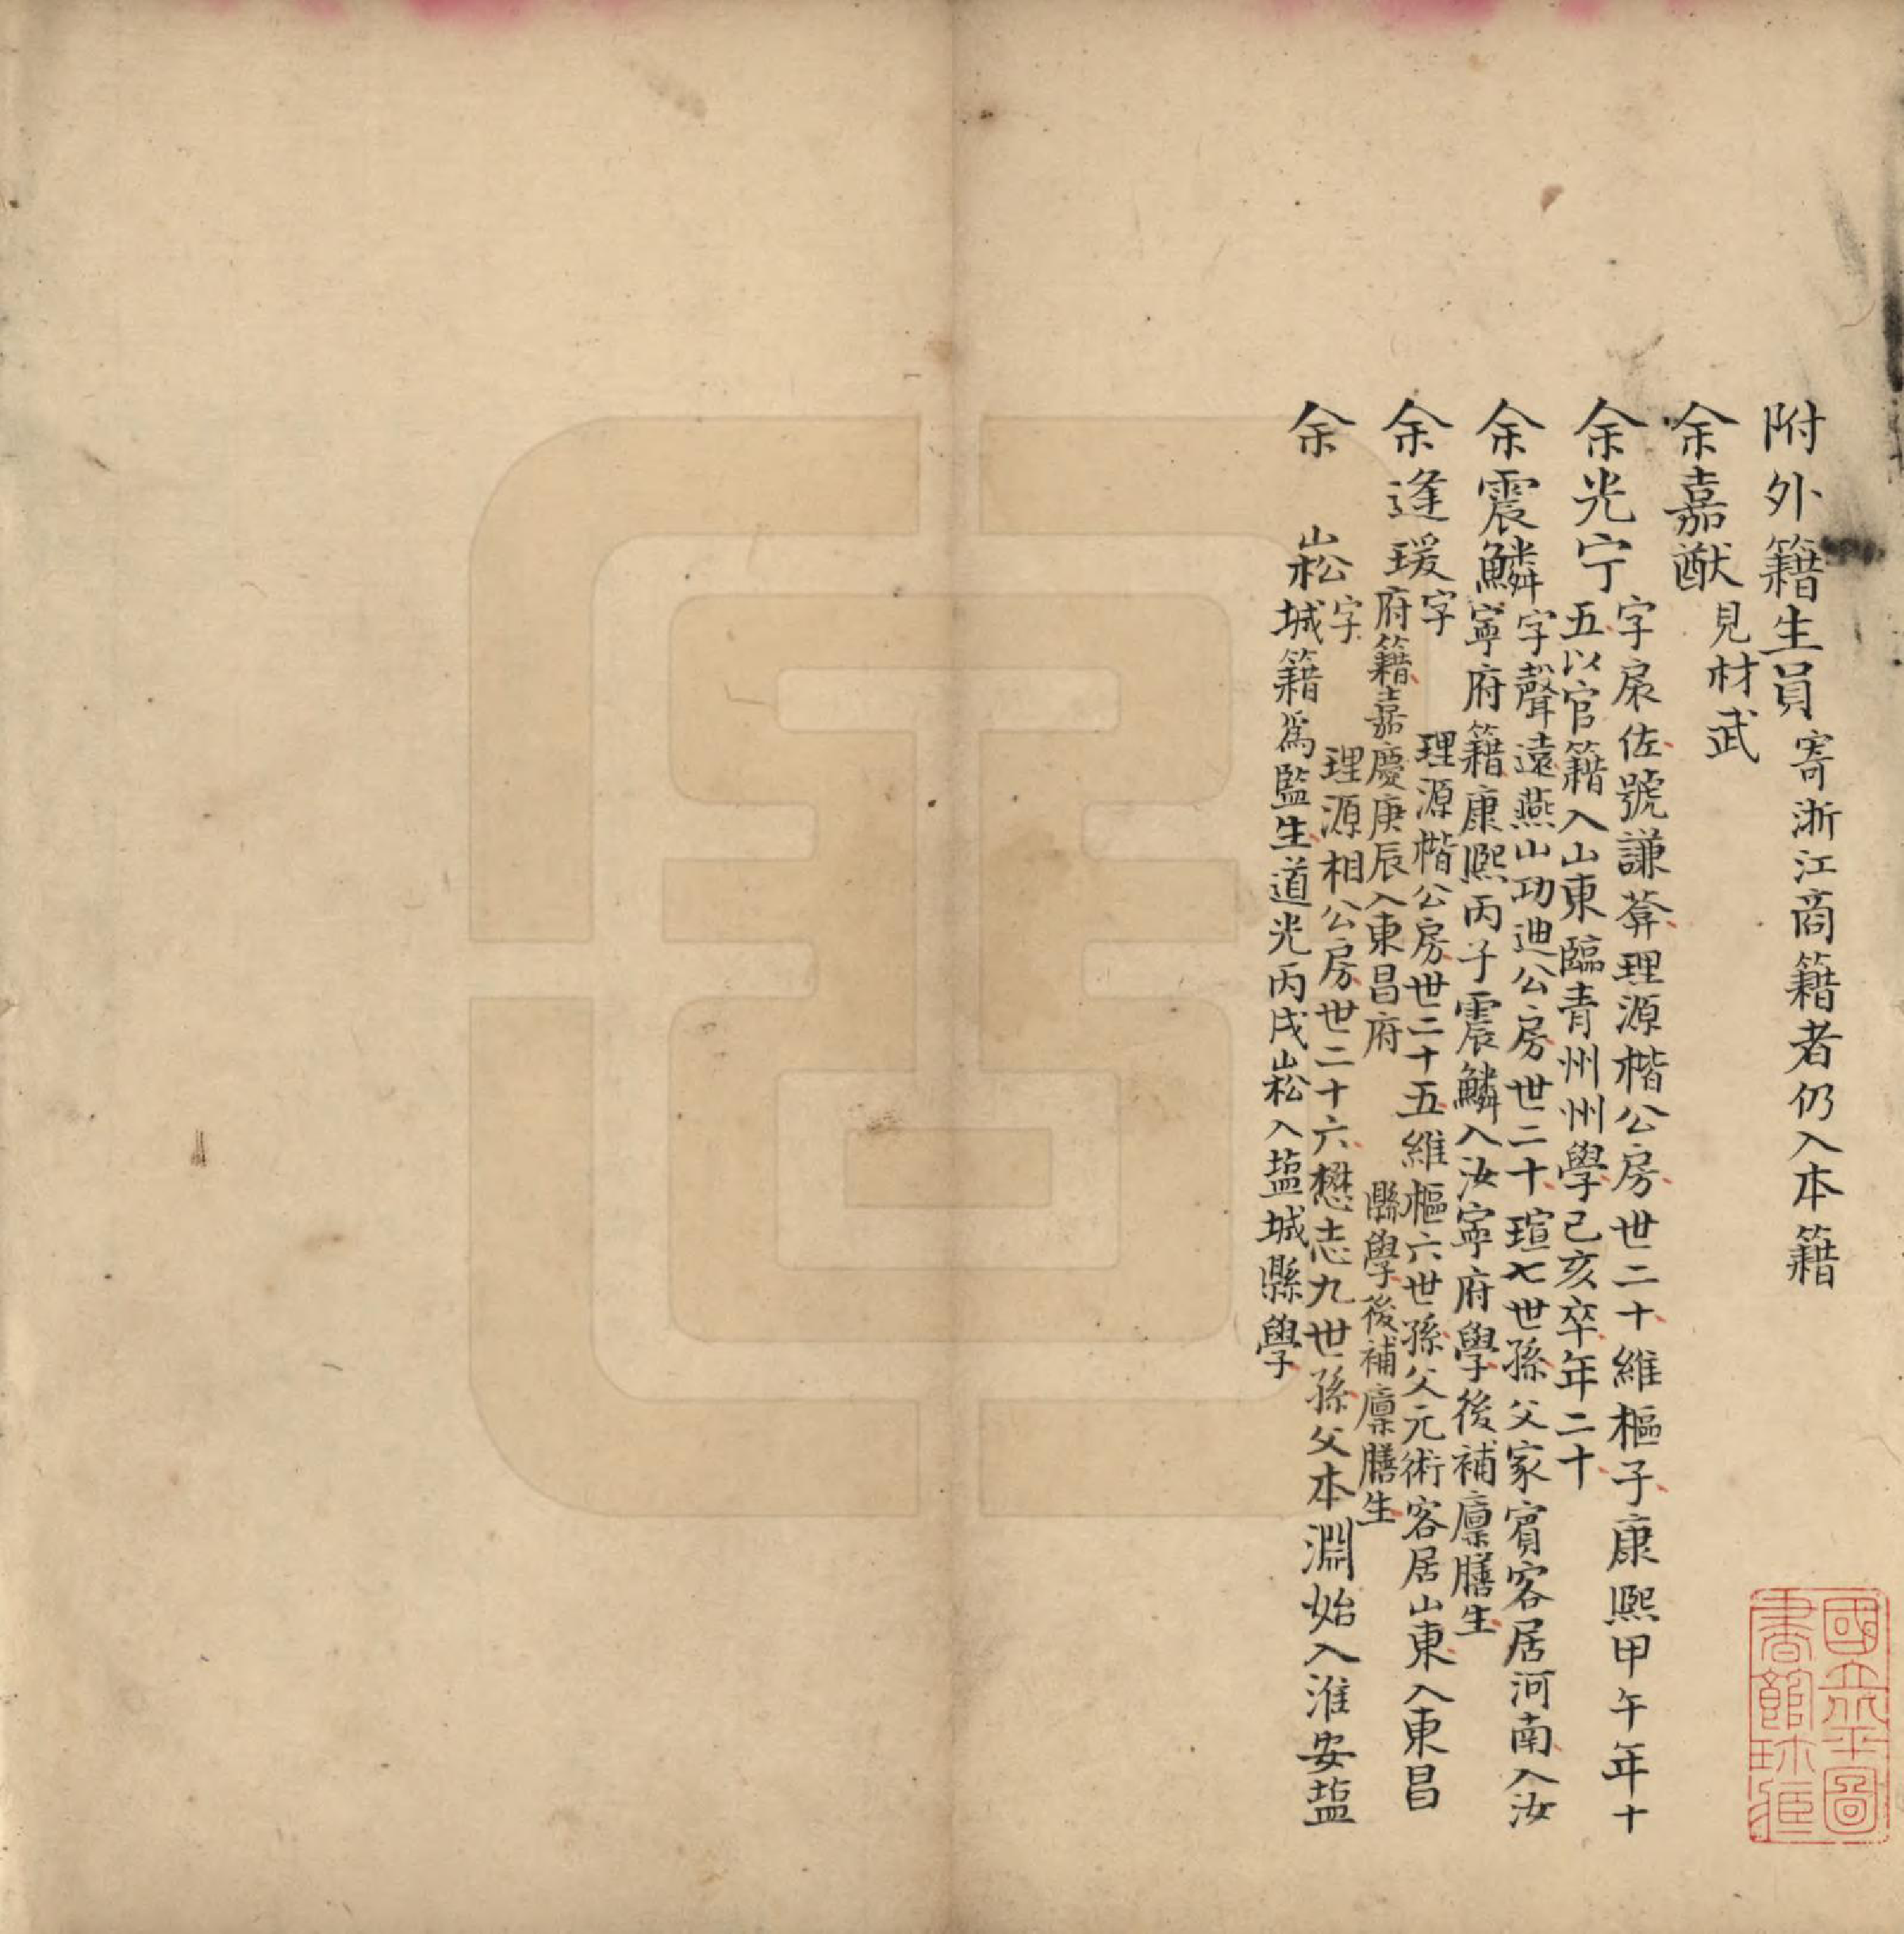 附外籍生員寄浙江商籍者仍入本籍
余嘉猷見材武
余光宁字扆佐號謙葊理源楷公房世二十維樞子康熙甲午年十
五以官籍入山東臨青州州學己亥卒年二十
余震鱗字聲遠燕山功迪公房世二十瑄七世孫父家賓客居河南入汝
寧府籍康熙丙子震鱗入汝寧府學後補廩膳生
余逢瑗字 理源楷公房世二十五維樞六世孫父元術客居山東入東昌
府籍嘉慶庚辰入東昌府 縣學後補廩膳生
余 崧字 理源相公房世二十六懋志九世孫父本淵始入淮安塩
城籍為監生道光丙戌崧入塩城縣學
國立北平圖書館珍藏